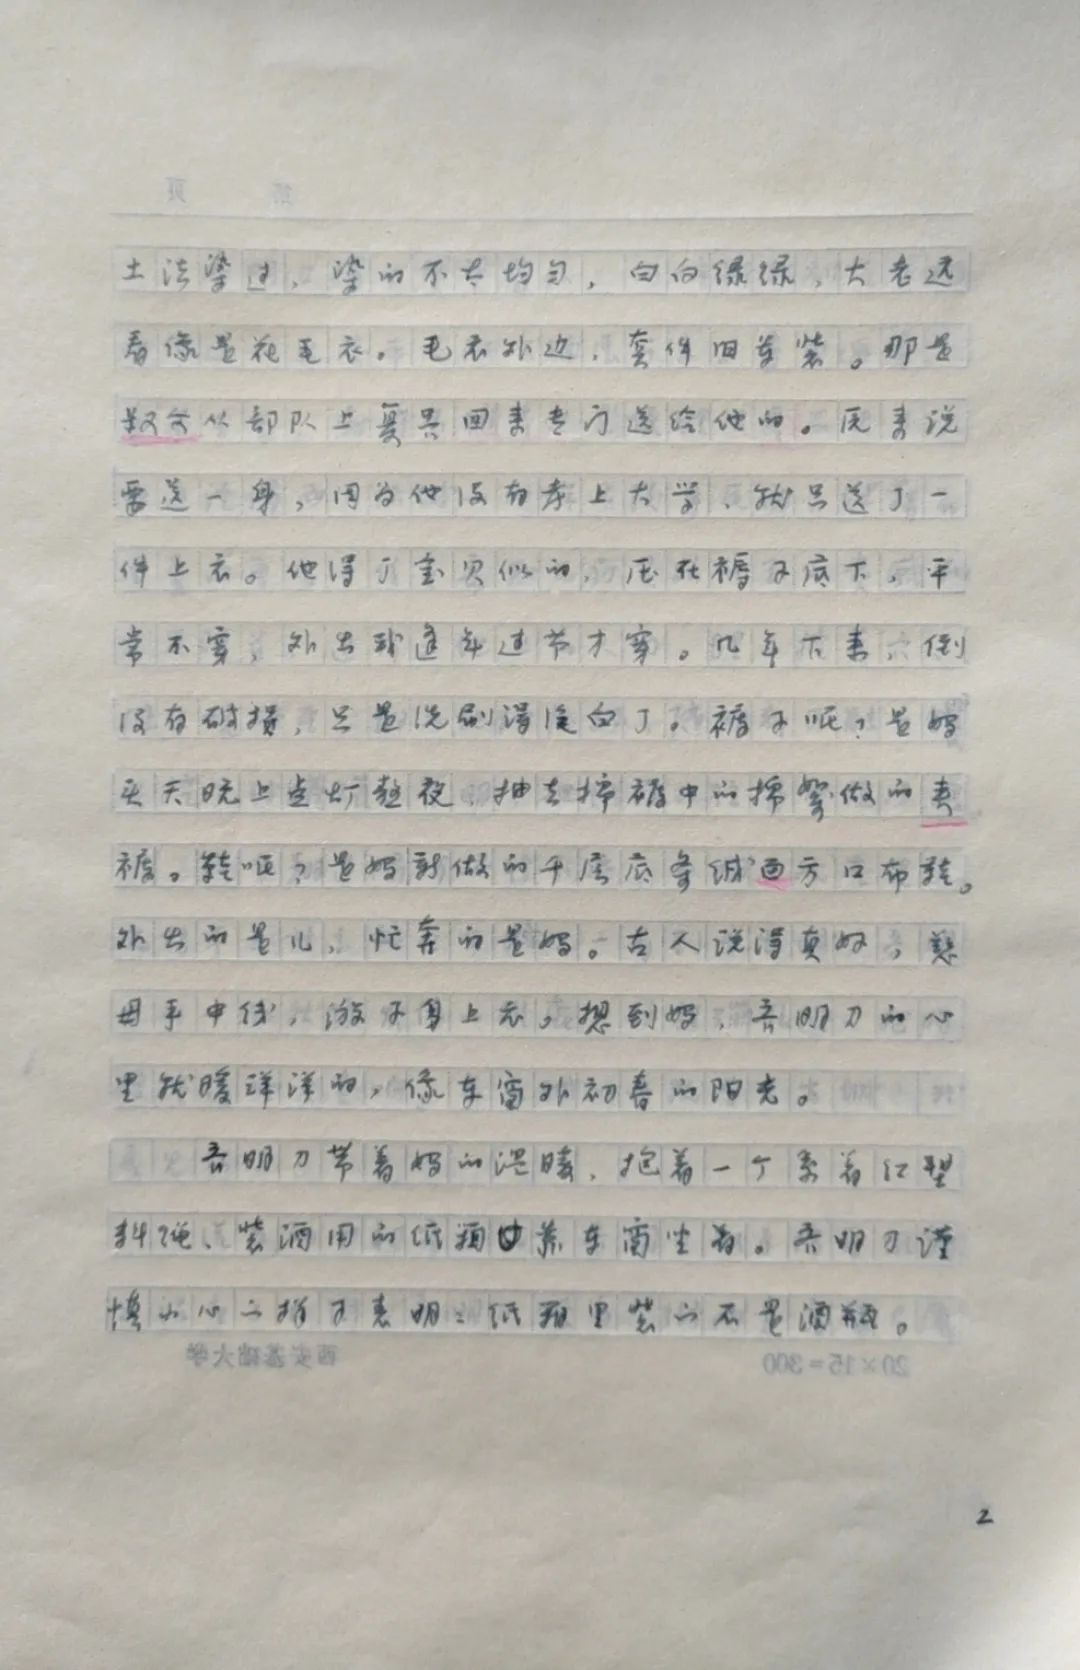 土法染过，染的不太均匀，白白绿绿，大老远
看像是花毛衣。毛衣外边，套件旧军装。那是
叔父从部队上复员回来专门送给他的。原来说
要送一身，因为他没有考上大学，就只送了一
件上衣。他得了宝贝似的，压在褥子底下，平
常不穿，外出或逢年过节才穿。几年下来，倒
没有破损，只是洗刷得泛白了。裤子呢？是妈
头天晚上点灯熬夜，抽去棉裤中的棉絮做的夹
裤。鞋呢？是妈新做的千层底条绒面方口布鞋。
外出的是儿，忙奔的是妈。古人说得真好，慈
母手中线，游子身上衣。想到妈，吾明刀的心
里就暖洋洋的，像车窗外初春的阳光。
吾明刀带着妈的温暖，抱着一个系着红塑
料绳、装酒用的纸箱靠车窗坐着。吾明刀谨
慎小心的样子表明：纸箱里装的不是酒瓶。
西安基础大学
20×15=300
2